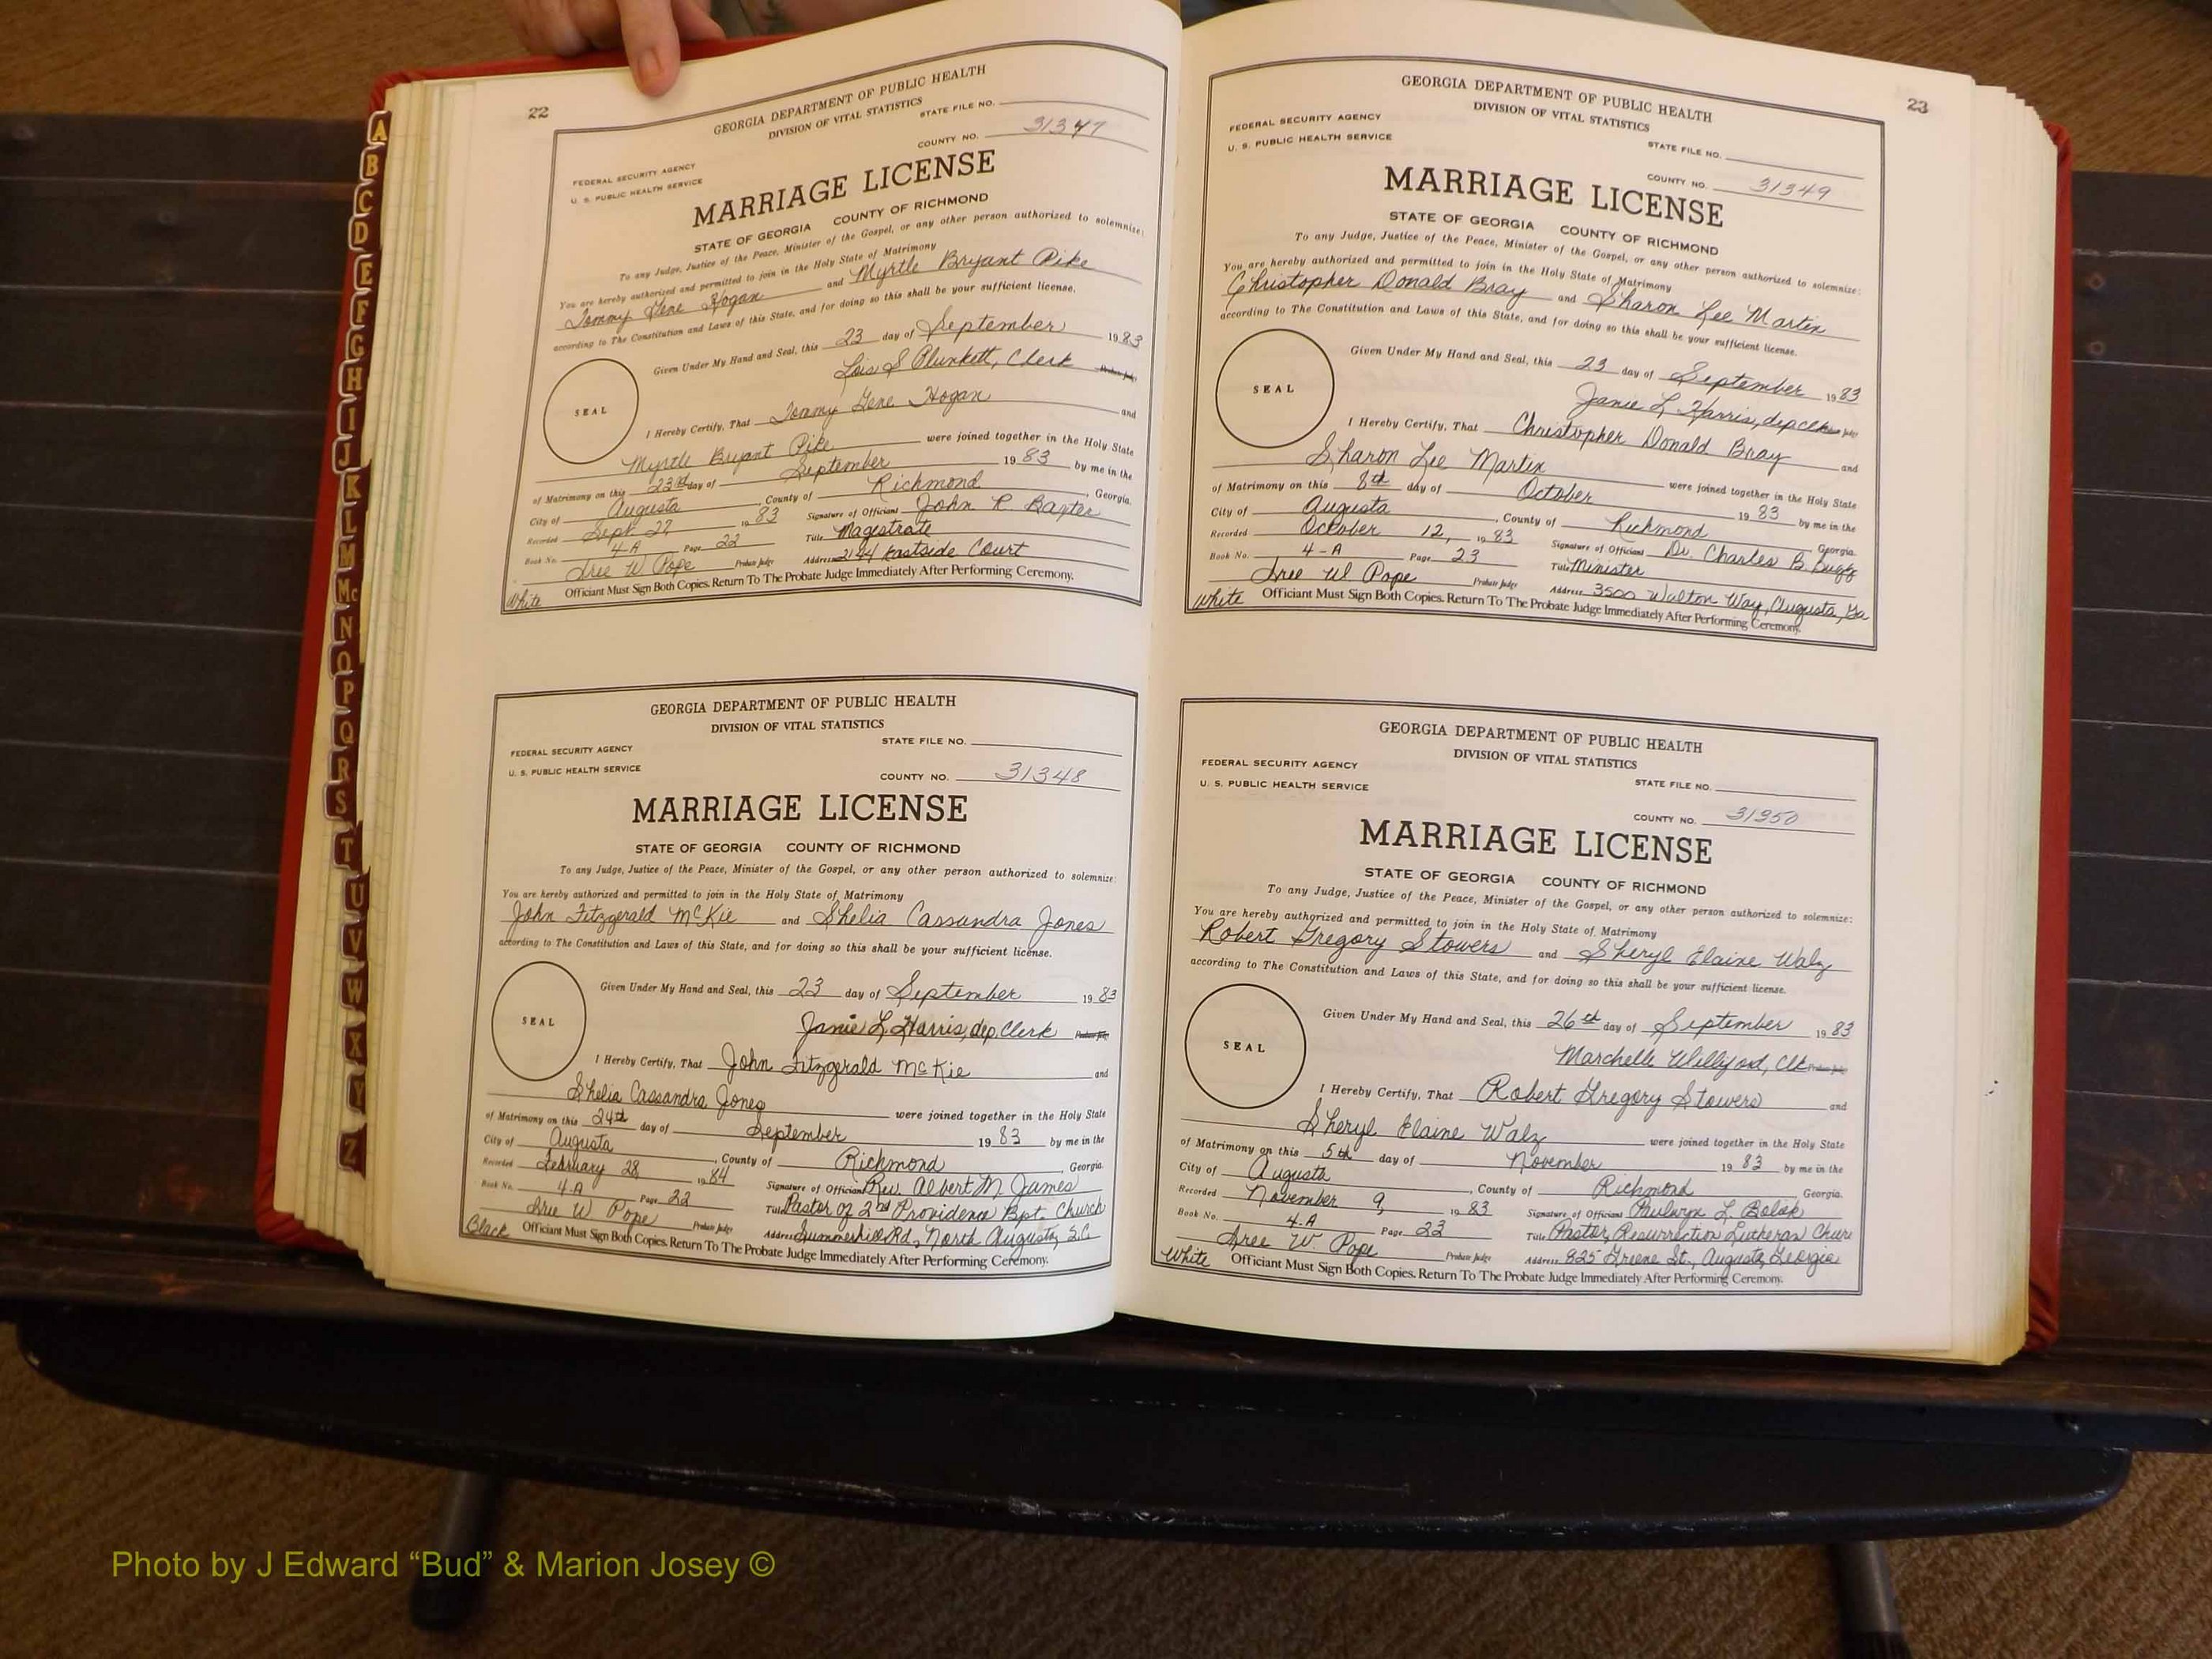 A
B
C
D
E
F
G
H
I
J
K
L
M
Mc
N
O
P
Q
R
S
T
U
V
W
X
Y
Z
22
GEORGIA DEPARTMENT OF PUBLIC HEALTH
DIVISION OF VITAL STATISTICS
STATE FILE NO.
COUNTY NO. 31347
FEDERAL SECURITY AGENCY
U. S. PUBLIC HEALTH SERVICE
MARRIAGE LICENSE
STATE OF GEORGIA COUNTY OF RICHMOND
To any Judge, Justice of the Peace, Minister of the Gospel, or any other person authorized to solemnize:
You are hereby authorized and permitted to join in the Holy State of Matrimony
Tommy Gene Hogan and Myrtle Bryant Pike
according to The Constitution and Laws of this State, and for doing so this shall be your sufficient license.
Given Under My Hand and Seal, this 23 day of September 1983
Lois S Plunkett, Clerk Probate Judge
SEAL
I Hereby Certify, That Tommy Gene Hogan and
Myrtle Bryant Pike were joined together in the Holy State
of Matrimony on this 23rd day of September 1983 by me in the
City of Augusta, County of Richmond, Georgia.
Recorded Sept. 27 1983 Signature of Officiant John R. Baxter
Book No. 4-A Page 22 Title Magestrate
Sree W Pope Probate Judge Address 2144 Eastside Court
White Officiant Must Sign Both Copies. Return To The Probate Judge Immediately After Performing Ceremony.
GEORGIA DEPARTMENT OF PUBLIC HEALTH
DIVISION OF VITAL STATISTICS
FEDERAL SECURITY AGENCY STATE FILE NO.
U. S. PUBLIC HEALTH SERVICE COUNTY NO. 31348
MARRIAGE LICENSE
STATE OF GEORGIA COUNTY OF RICHMOND
To any Judge, Justice of the Peace, Minister of the Gospel, or any other person authorized to solemnize:
You are hereby authorized and permitted to join in the Holy State of Matrimony
John Fitzgerald McKie and Shelia Cassandra Jones
according to The Constitution and Laws of this State, and for doing so this shall be your sufficient license.
Given Under My Hand and Seal, this 23 day of September 1983
Janie L. Harris, dep. Clerk Probate Judge
SEAL
I Hereby Certify, That John Fitzgerald McKie and
Shelia Cassandra Jones were joined together in the Holy State
of Matrimony on this 24th day of September 1983 by me in the
City of Augusta, County of Richmond, Georgia.
Recorded February 28 1984 Signature of Officiant Rev. Albert M. James
Book No. 4-A Page 22 Title Pastor of 2nd Providence Bpt. Church
Sree W Pope Probate Judge Address Summerhill Rd, North Augusta, S.C.
Black Officiant Must Sign Both Copies. Return To The Probate Judge Immediately After Performing Ceremony.
23
GEORGIA DEPARTMENT OF PUBLIC HEALTH
DIVISION OF VITAL STATISTICS
FEDERAL SECURITY AGENCY
U. S. PUBLIC HEALTH SERVICE
STATE FILE NO.
COUNTY NO. 31349
MARRIAGE LICENSE
STATE OF GEORGIA COUNTY OF RICHMOND
To any Judge, Justice of the Peace, Minister of the Gospel, or any other person authorized to solemnize:
You are hereby authorized and permitted to join in the Holy State of Matrimony
Christopher Donald Bray and Sharon Lee Martin
according to The Constitution and Laws of this State, and for doing so this shall be your sufficient license.
Given Under My Hand and Seal, this 23 day of September 1983
Janie L. Harris, dep clk Judge
SEAL
I Hereby Certify, That Christopher Donald Bray and
Sharon Lee Martin were joined together in the Holy State
of Matrimony on this 8th day of October 1983 by me in the
City of Augusta, County of Richmond Georgia.
Recorded October 12, 1983 Signature of Officiant Dr. Charles B.
Book No. 4-A Page 23 Title Minister
Sree W Pope Probate Judge Address 3500 Walton Way, Augusta, Ga
White Officiant Must Sign Both Copies. Return To The Probate Judge Immediately After Performing Ceremony.
GEORGIA DEPARTMENT OF PUBLIC HEALTH
DIVISION OF VITAL STATISTICS
FEDERAL SECURITY AGENCY
U. S. PUBLIC HEALTH SERVICE
STATE FILE NO.
COUNTY NO. 31350
MARRIAGE LICENSE
STATE OF GEORGIA COUNTY OF RICHMOND
To any Judge, Justice of the Peace, Minister of the Gospel, or any other person authorized to solemnize:
You are hereby authorized and permitted to join in the Holy State of Matrimony
Robert Gregory Stowers and Sheryl Elaine Walz
according to The Constitution and Laws of this State, and for doing so this shall be your sufficient license.
Given Under My Hand and Seal, this 26th day of September 1983
Marchelle Williford, Clk Probate Judge
SEAL
I Hereby Certify, That Robert Gregory Stowers and
Sheryl Elaine Walz were joined together in the Holy State
of Matrimony on this 5th day of November 1983 by me in the
City of Augusta, County of Richmond Georgia.
Recorded November 9, 1983 Signature of Officiant Paulwyn L. Belak
Book No. 4-A Page 23 Title Pastor, Resurrection Lutheran Chur
Sree W. Pope Probate Judge Address 825 Greene St., Augusta, Georgia
White Officiant Must Sign Both Copies. Return To The Probate Judge Immediately After Performing Ceremony.
Photo by J Edward “Bud” & Marion Josey ©